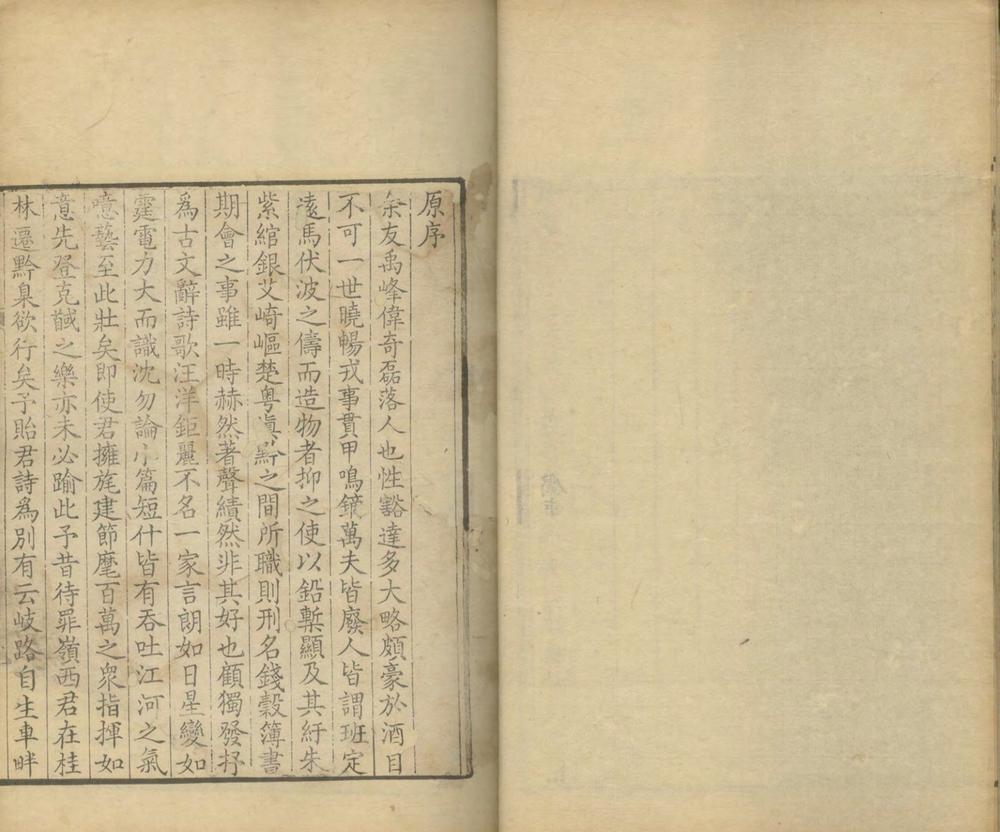 原序
余友禹峰偉奇磊落人也性豁達多大略頗豪於酒目
不可一世曉暢戎事貫甲鳴鏑萬夫皆廢人皆謂班定
遠馬伏波之儔而造物者抑之使以鉛槧顯及其紆朱
紫綰銀艾崎嶇楚粵滇黔之間所職則刑名錢穀簿書
期會之事雖一時赫然著聲績然非其好也顧獨發抒
為古文辭詩歌汪洋鉅麗不名一家言朗如日星變如
霆電力大而識沈勿論小篇短什皆有吞吐江河之氣
噫藝至此壯矣即使君擁旄建節麾百萬之衆指揮如
意先登克馘之樂亦未必踰此予昔待罪嶺西君在桂
林遷黔臬欲行矣予貽君詩為別有云岐路自生車畔